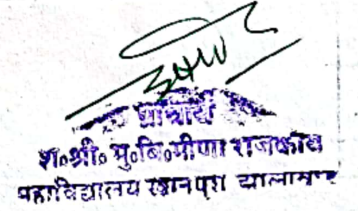 प्राचार्य
श०श्री० मु०बि०मीणा राजकीय
महाविद्यालय खानपुरा झालावाड़